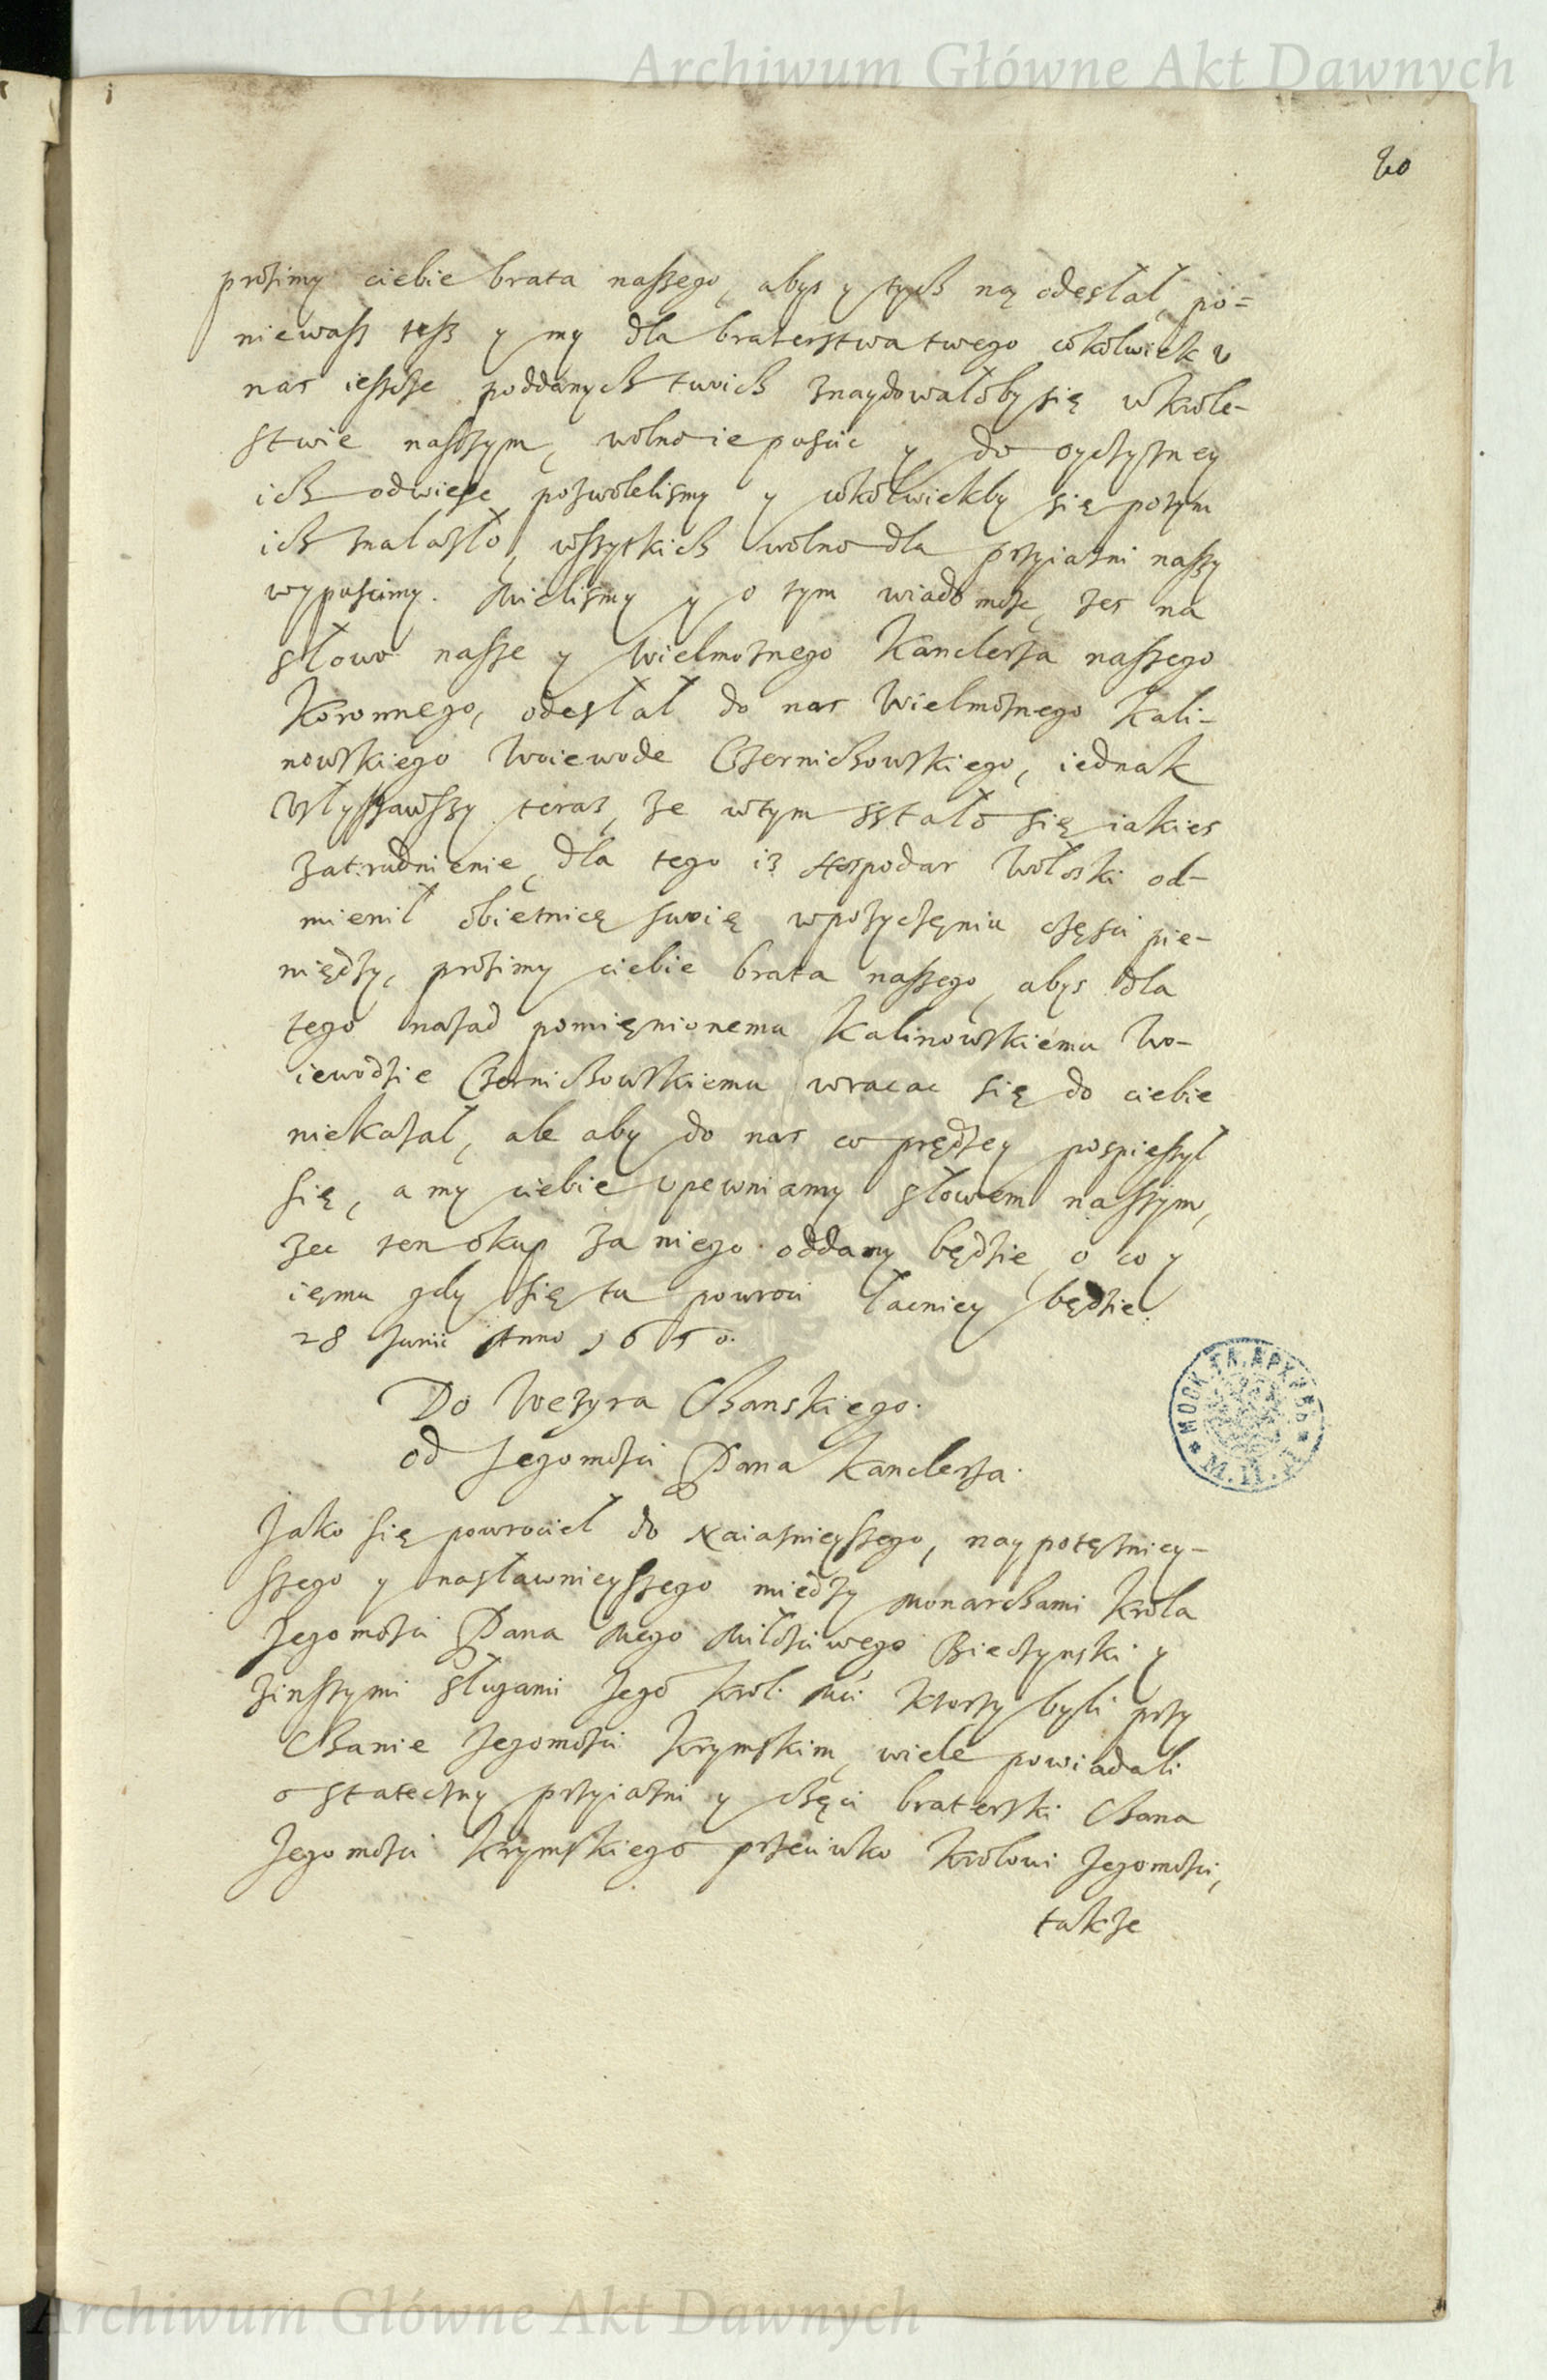 Archiwum Główne Akt Dawnych
20
prosimy ciebie brata naszego, abys y tych nąm odesłał, po=
niewasz tesz y my dla braterstwa twego cokolwiek v
nas ieszcze poddanych twoich znaydowałoby się w Krole-
stwie naszym, wolno ie puscic y do oyczyzney
ich odwiesc pozwolelismy y cokolwiekby się potym
ich znalaszło, wszytkich wolno dla przyiazni naszy
wypuscimy. Mielismy y o tym wiadomosc, zes na
słowo nasze y Wielmoznego Kanclerza naszego
Koronnego, odesłał do nas Wielmoznego Kali-
nowskiego Woiewode Czernichowskiego, iednak
Vsłyszawszy teraz, ze w tym sstało się iakies
zatrudnienie, dla tego iz Hospodar Wołoski od-
mienił obietnicę swoię w pozyczęniu częsci pie-
niędzy, prosimy ciebie brata naszego, abys dla
tego nazad pomięnionemu Kalinowskiemu Wo-
iewodzie Czernichowskiemu wracac się do ciebie
niekazał, ale aby do nas co prędzey pospieszył
się, a my ciebie vpewniamy słowem naszym,
zec ten okup za niego oddany będzie, o co y
ięmu gdy się tu powroci łacniey będzie.
28 Junii Anno 1650.
Do Wezyra Chanskiego.
od Jegomosci Pana Kanclerza.
Jako się powrociel do Naiasnieyszego, naypotęzniey-
szego y nasławnieyszego między Monarchami Krola
Jegomosci Pana Mego Miłosciwego Bieczynski y
z inszymi sługami Jego Krol. Mci Ktorzy byli przy
Chanie Jegomosci Krymskim, wiele powiadali
o stateczny przyiazni y chęci braterski Chana
Jegomosci Krymskiego przeciwko Krolowi Jegomosci,
takze
МОСК. ГЛ. АРХИВЪ
М. И. Д.
Archiwum Główne Akt Dawnych